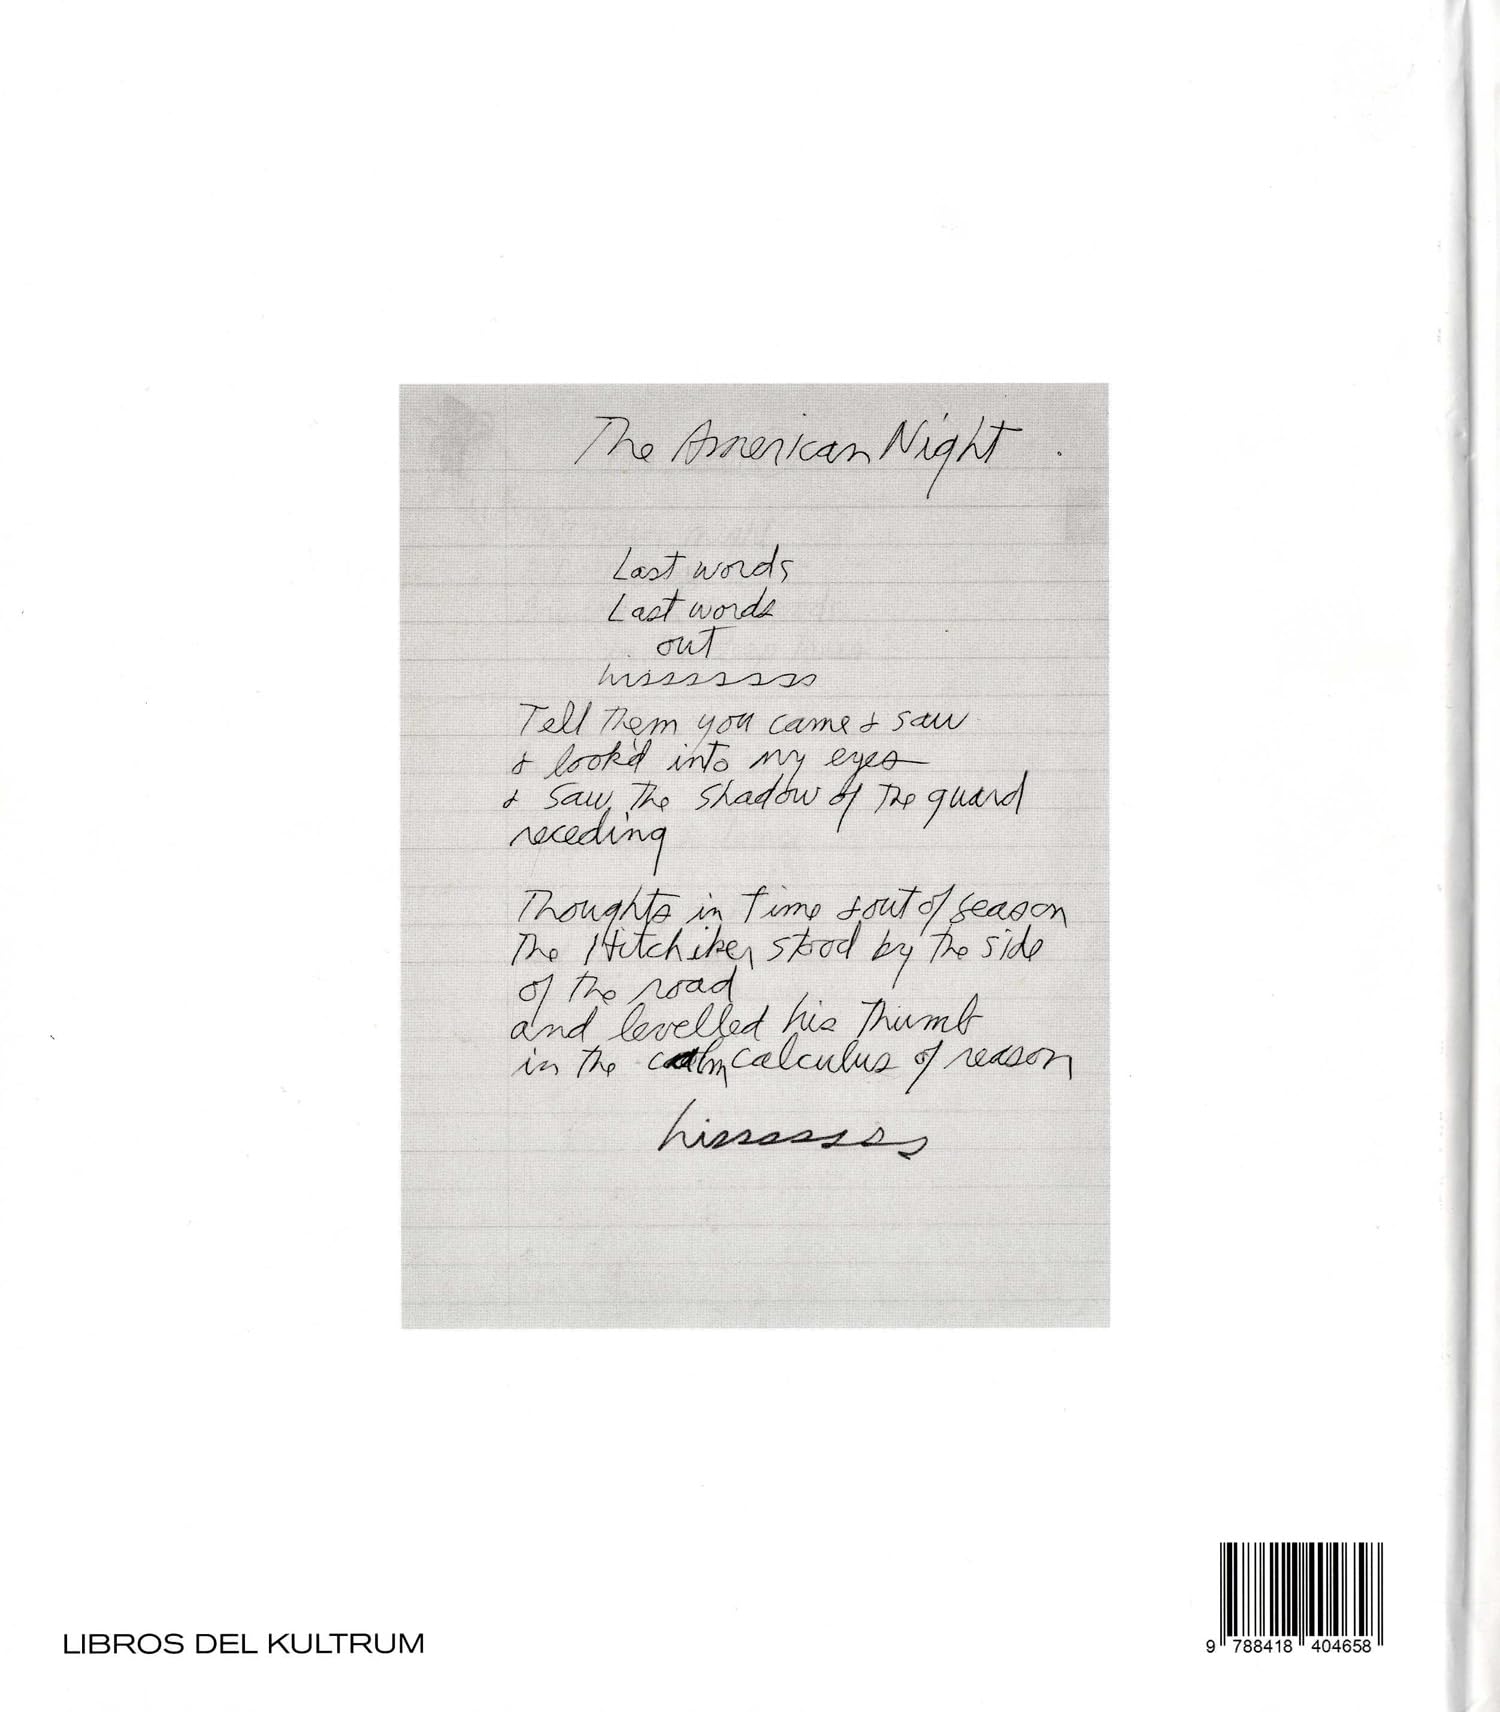 The American Night
Last words
Last words
out
hissssssss
Tell Them you came & saw
& look'd into my eyes
& saw The shadow of The guard
receding
Thoughts in Time & out of season
The Hitchiker stood by The side
of The road
and levelled his Thumb
in The calm calculus of reason
hissssssss
LIBROS DEL KULTRUM
9 788418 404658